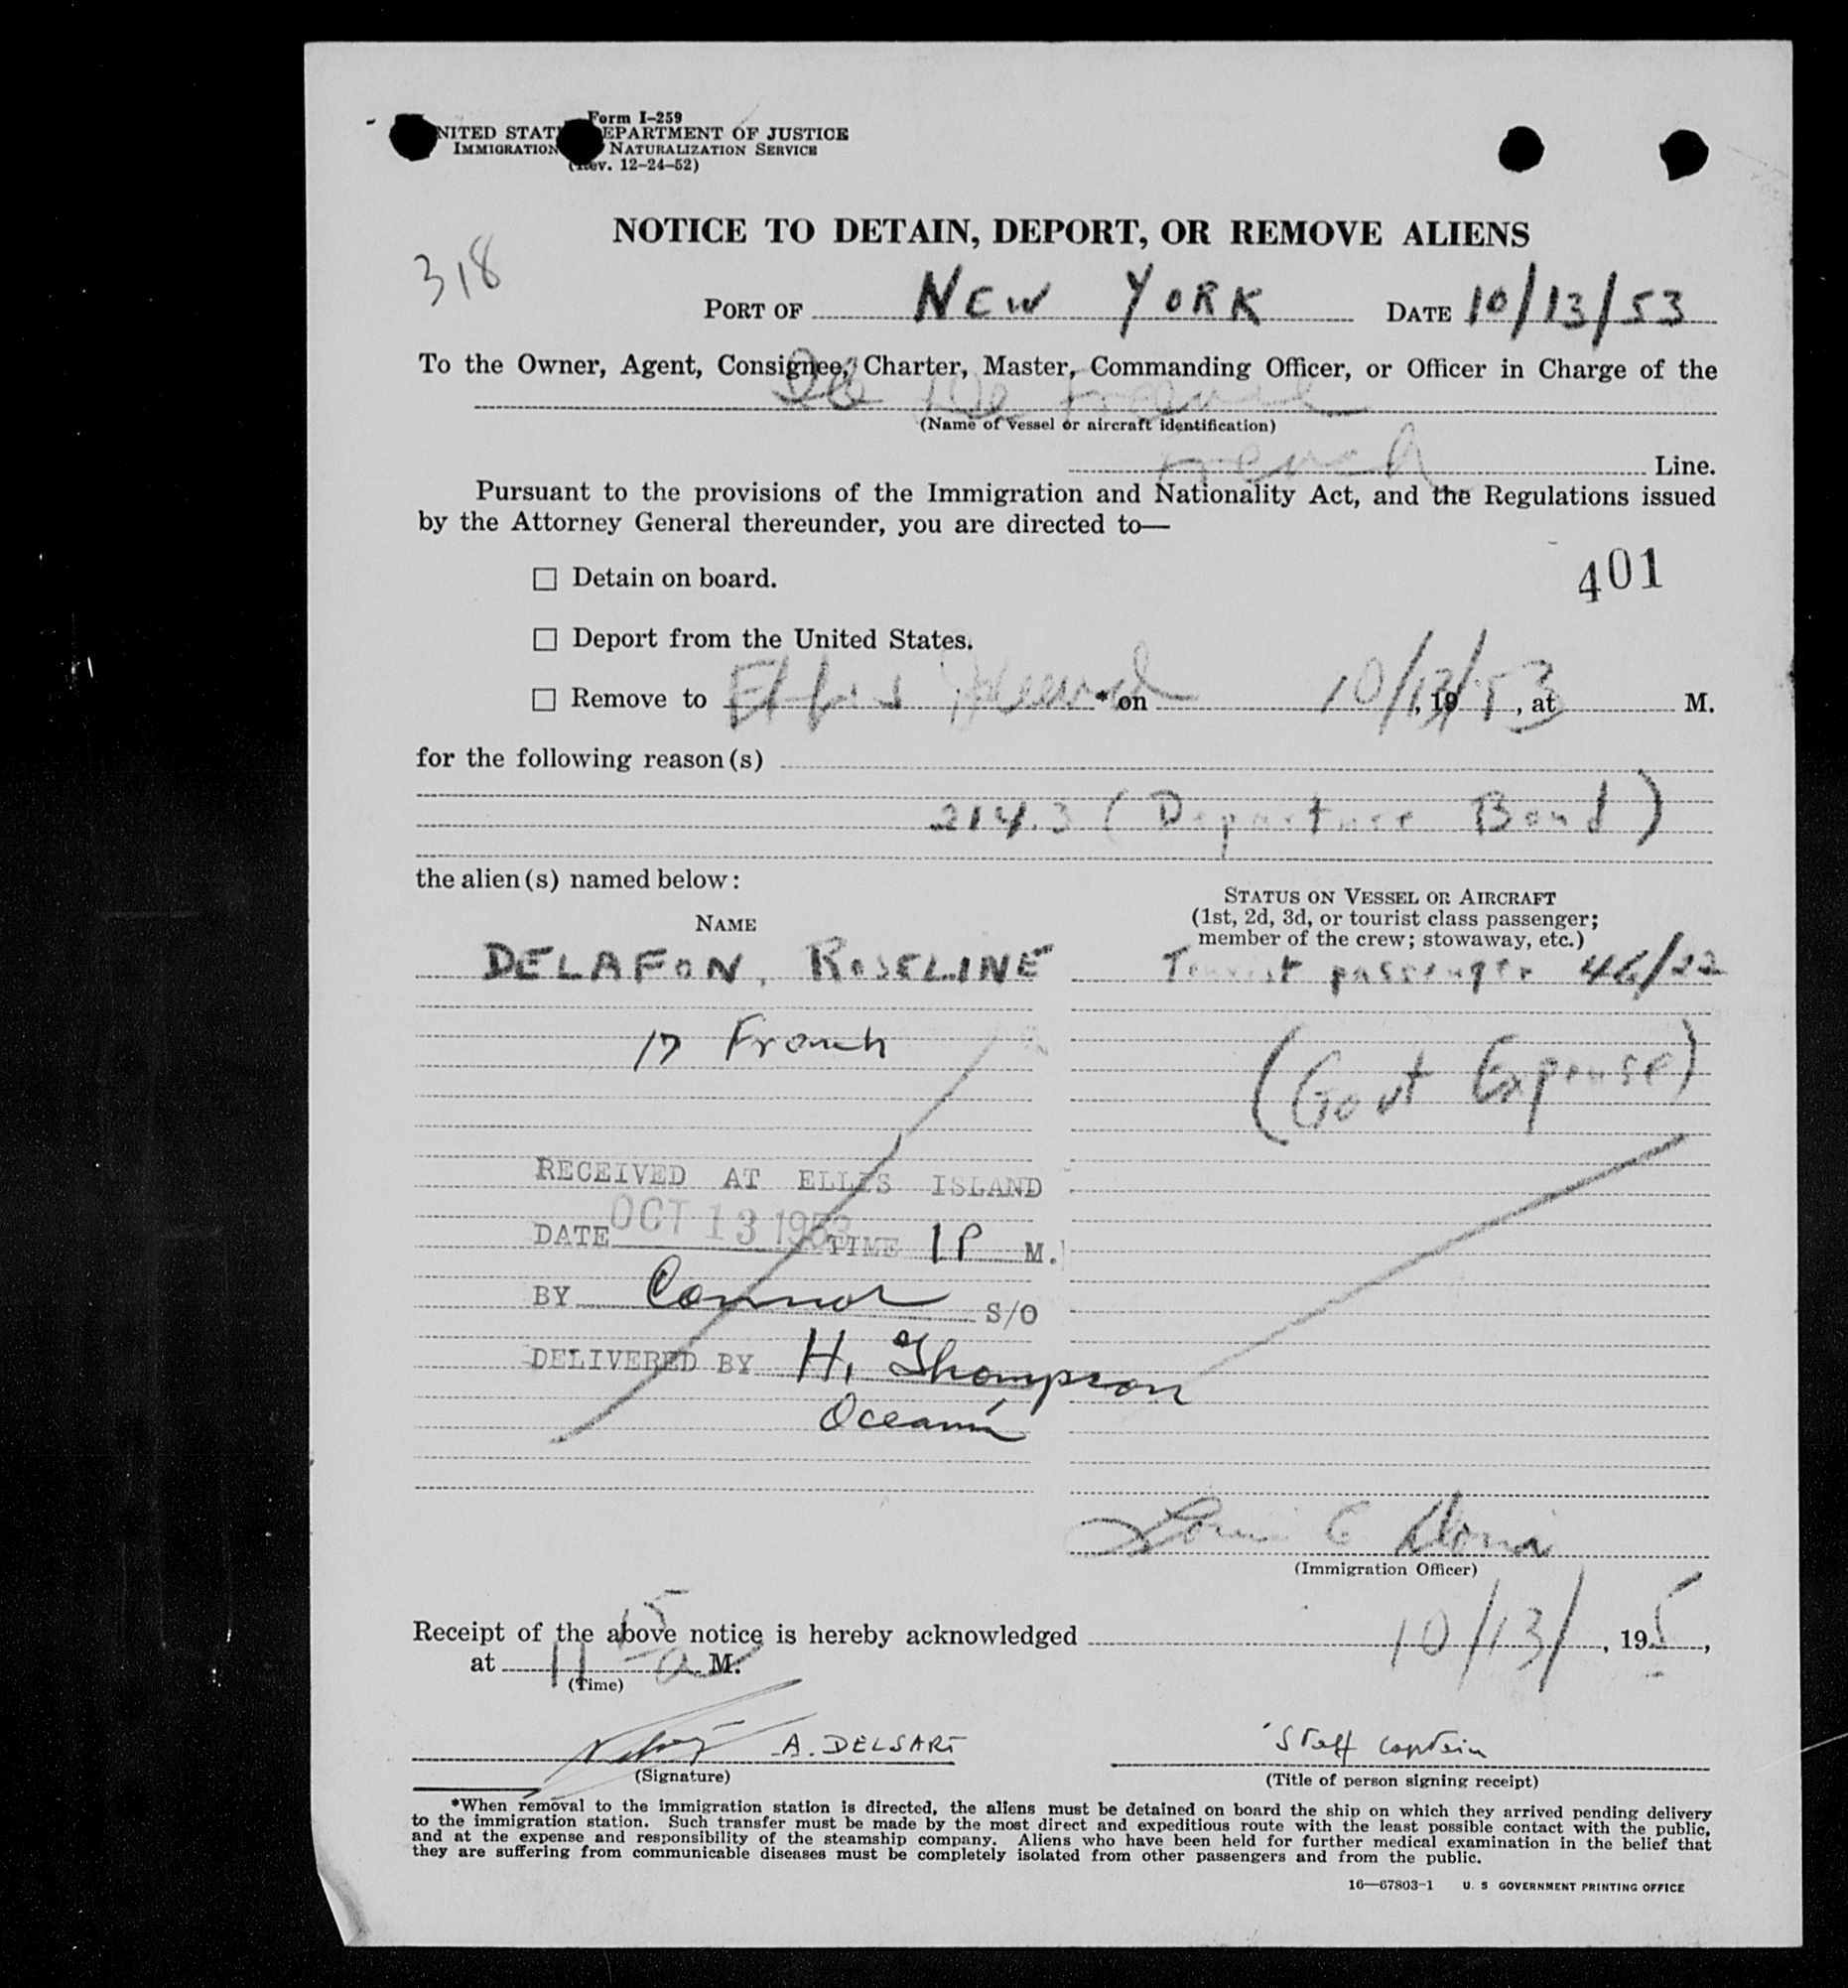 Form I-259
UNITED STATES DEPARTMENT OF JUSTICE
IMMIGRATION NATURALIZATION SERVICE
(Rev. 12-24-52)
NOTICE TO DETAIN, DEPORT, OR REMOVE ALIENS
318
PORT OF NEW YORK DATE 10/13/53
To the Owner, Agent, Consignee, Charter, Master, Commanding Officer, or Officer in Charge of the
Ile De France
(Name of vessel or aircraft identification)
French Line.
Pursuant to the provisions of the Immigration and Nationality Act, and the Regulations issued
by the Attorney General thereunder, you are directed to—
☐ Detain on board.
401
☐ Deport from the United States.
☐ Remove to Ellis Island * on 10/13/53, 19, at M.
for the following reason(s)
214.3 (Departure Bond)
the alien(s) named below:
STATUS ON VESSEL OR AIRCRAFT
(1st, 2d, 3d, or tourist class passenger;
member of the crew; stowaway, etc.)
NAME
DELAFON, ROSELINE Tourist passenger 46/22
17 French
(Govt Expense)
RECEIVED AT ELLIS ISLAND
DATE OCT 13 1953 TIME 1 P M.
BY Connor S/O
DELIVERED BY H. Thompson
Oceanic
Louis C
(Immigration Officer)
Receipt of the above notice is hereby acknowledged 10/13/, 195,
at 11 15 a M.
(Time)
A. DELSART Staff captain
(Signature) (Title of person signing receipt)
*When removal to the immigration station is directed, the aliens must be detained on board the ship on which they arrived pending delivery
to the immigration station. Such transfer must be made by the most direct and expeditious route with the least possible contact with the public,
and at the expense and responsibility of the steamship company. Aliens who have been held for further medical examination in the belief that
they are suffering from communicable diseases must be completely isolated from other passengers and from the public.
16—67803-1 U. S GOVERNMENT PRINTING OFFICE